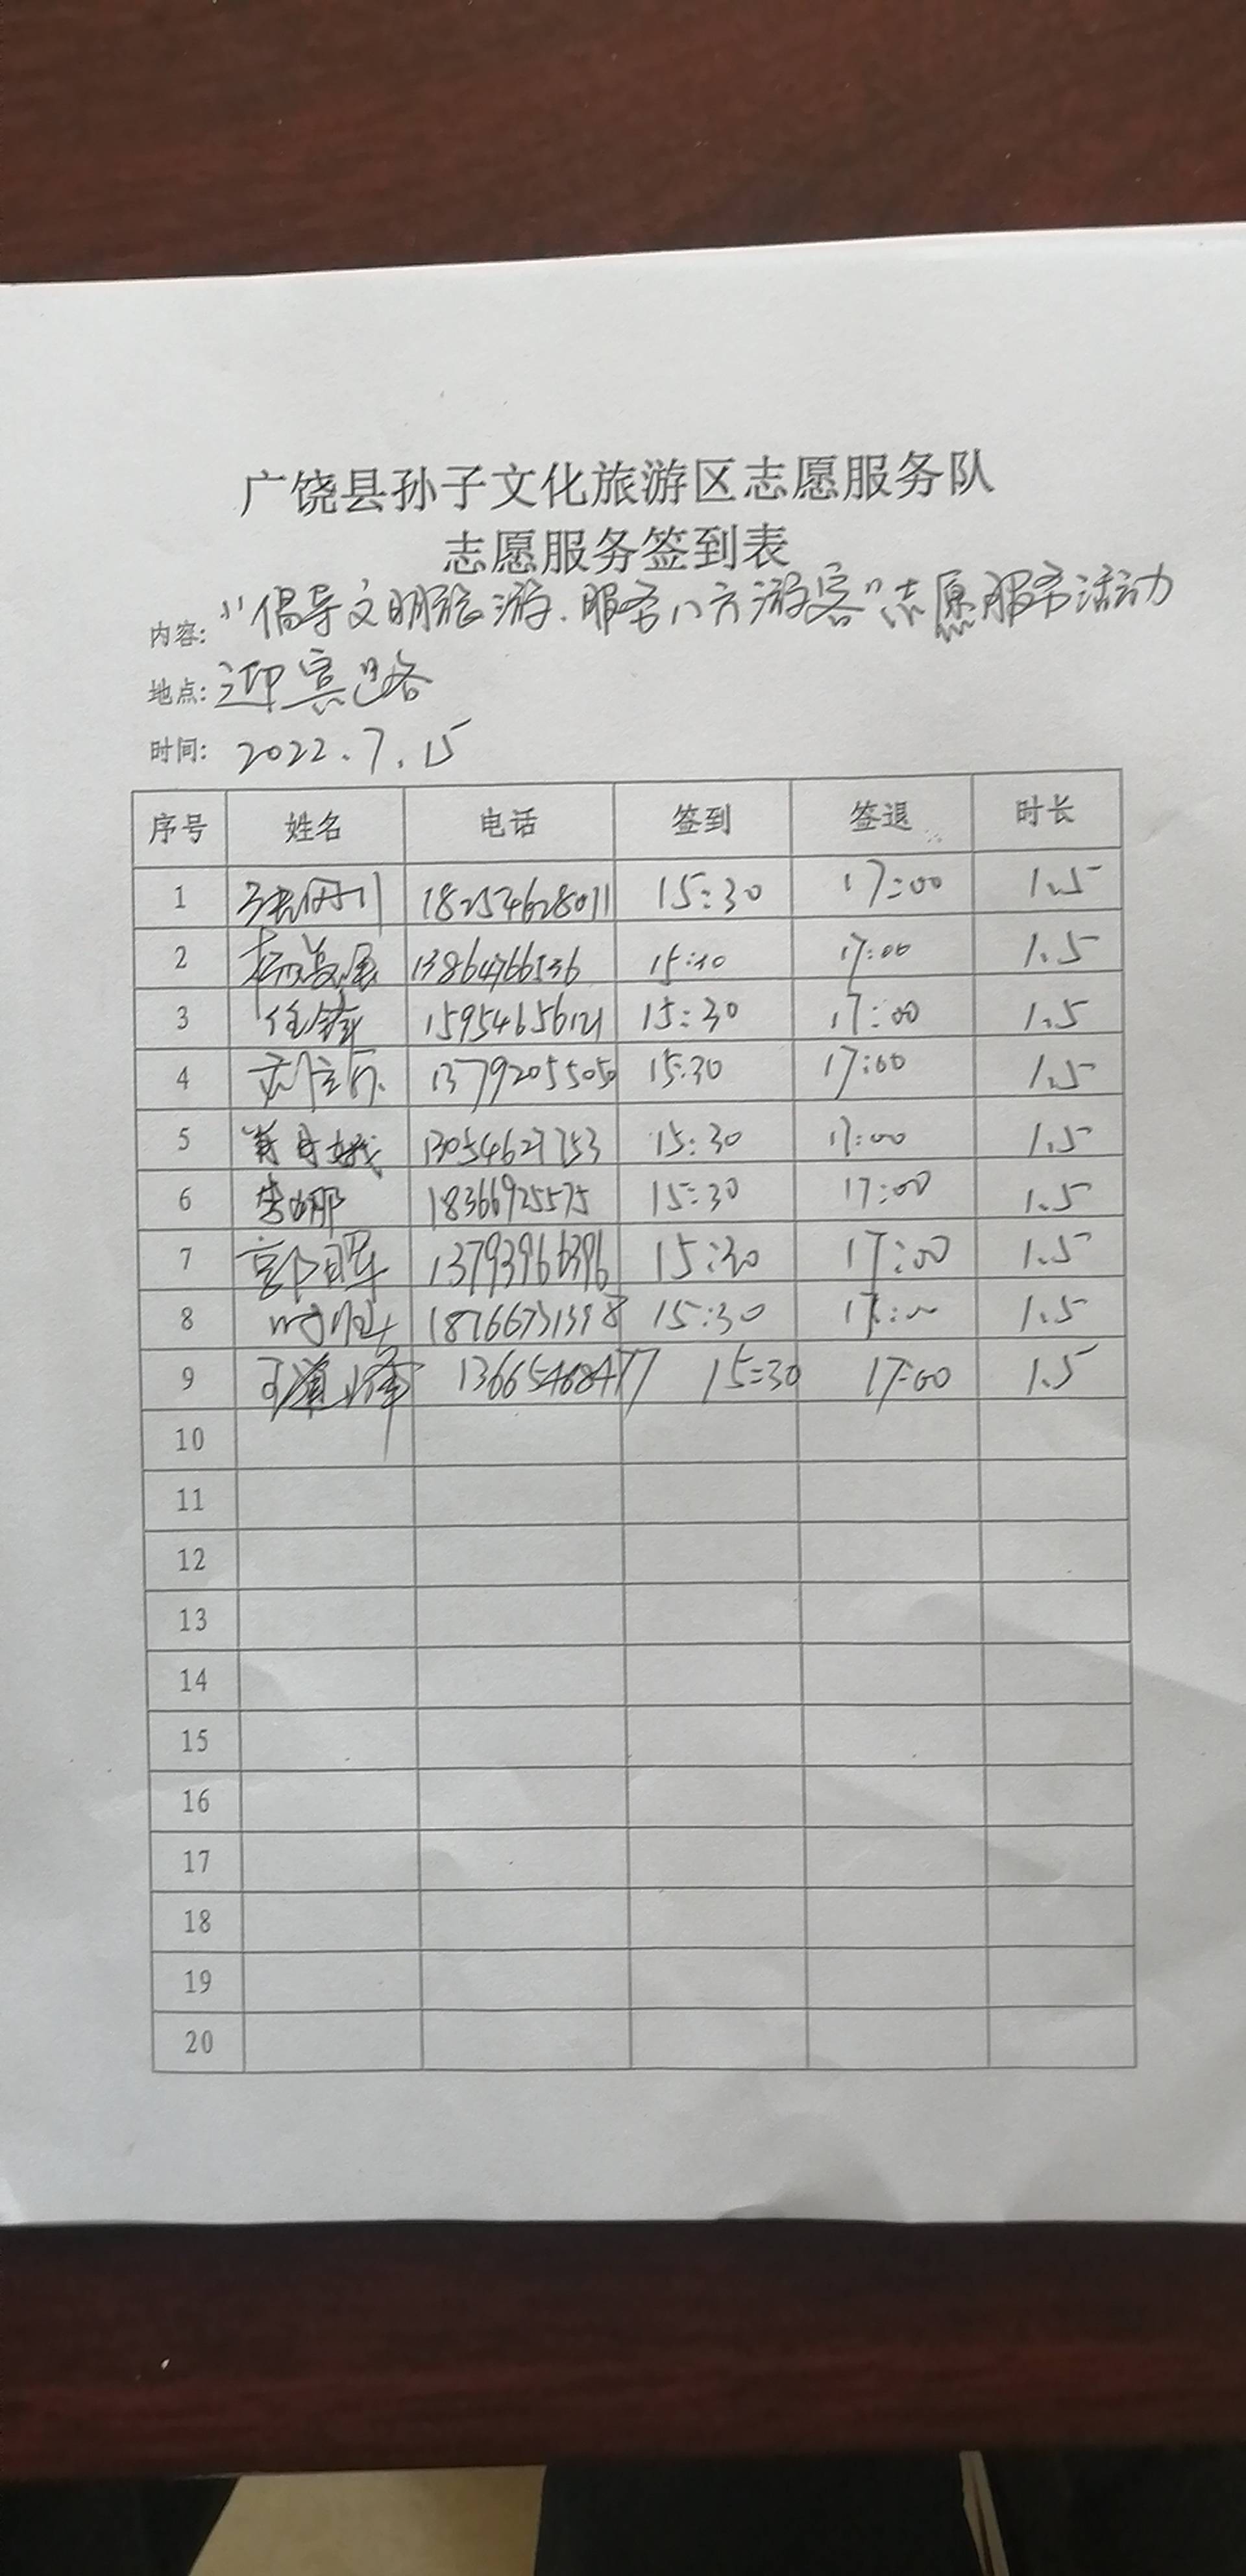 广饶县孙子文化旅游区志愿服务队
志愿服务签到表
内容: "倡导文明旅游.服务八方游客"志愿服务活动
地点: 迎宾路
时间: 2022.7.15
序号 姓名 电话 签到 签退 时长
1 18254628011 15:30 17:00 1.5
2 13864766536 15:30 17:00 1.5
3 15954656121 15:30 17:00 1.5
4 13792055050 15:30 17:00 1.5
5 13054627753 15:30 17:00 1.5
6 李娜 18366925575 15:30 17:00 1.5
7 郭晖 13793966396 15:30 17:00 1.5
8 15:30 17:00 1.5
9 13665468477 15:30 17:00 1.5
10
11
12
13
14
15
16
17
18
19
20